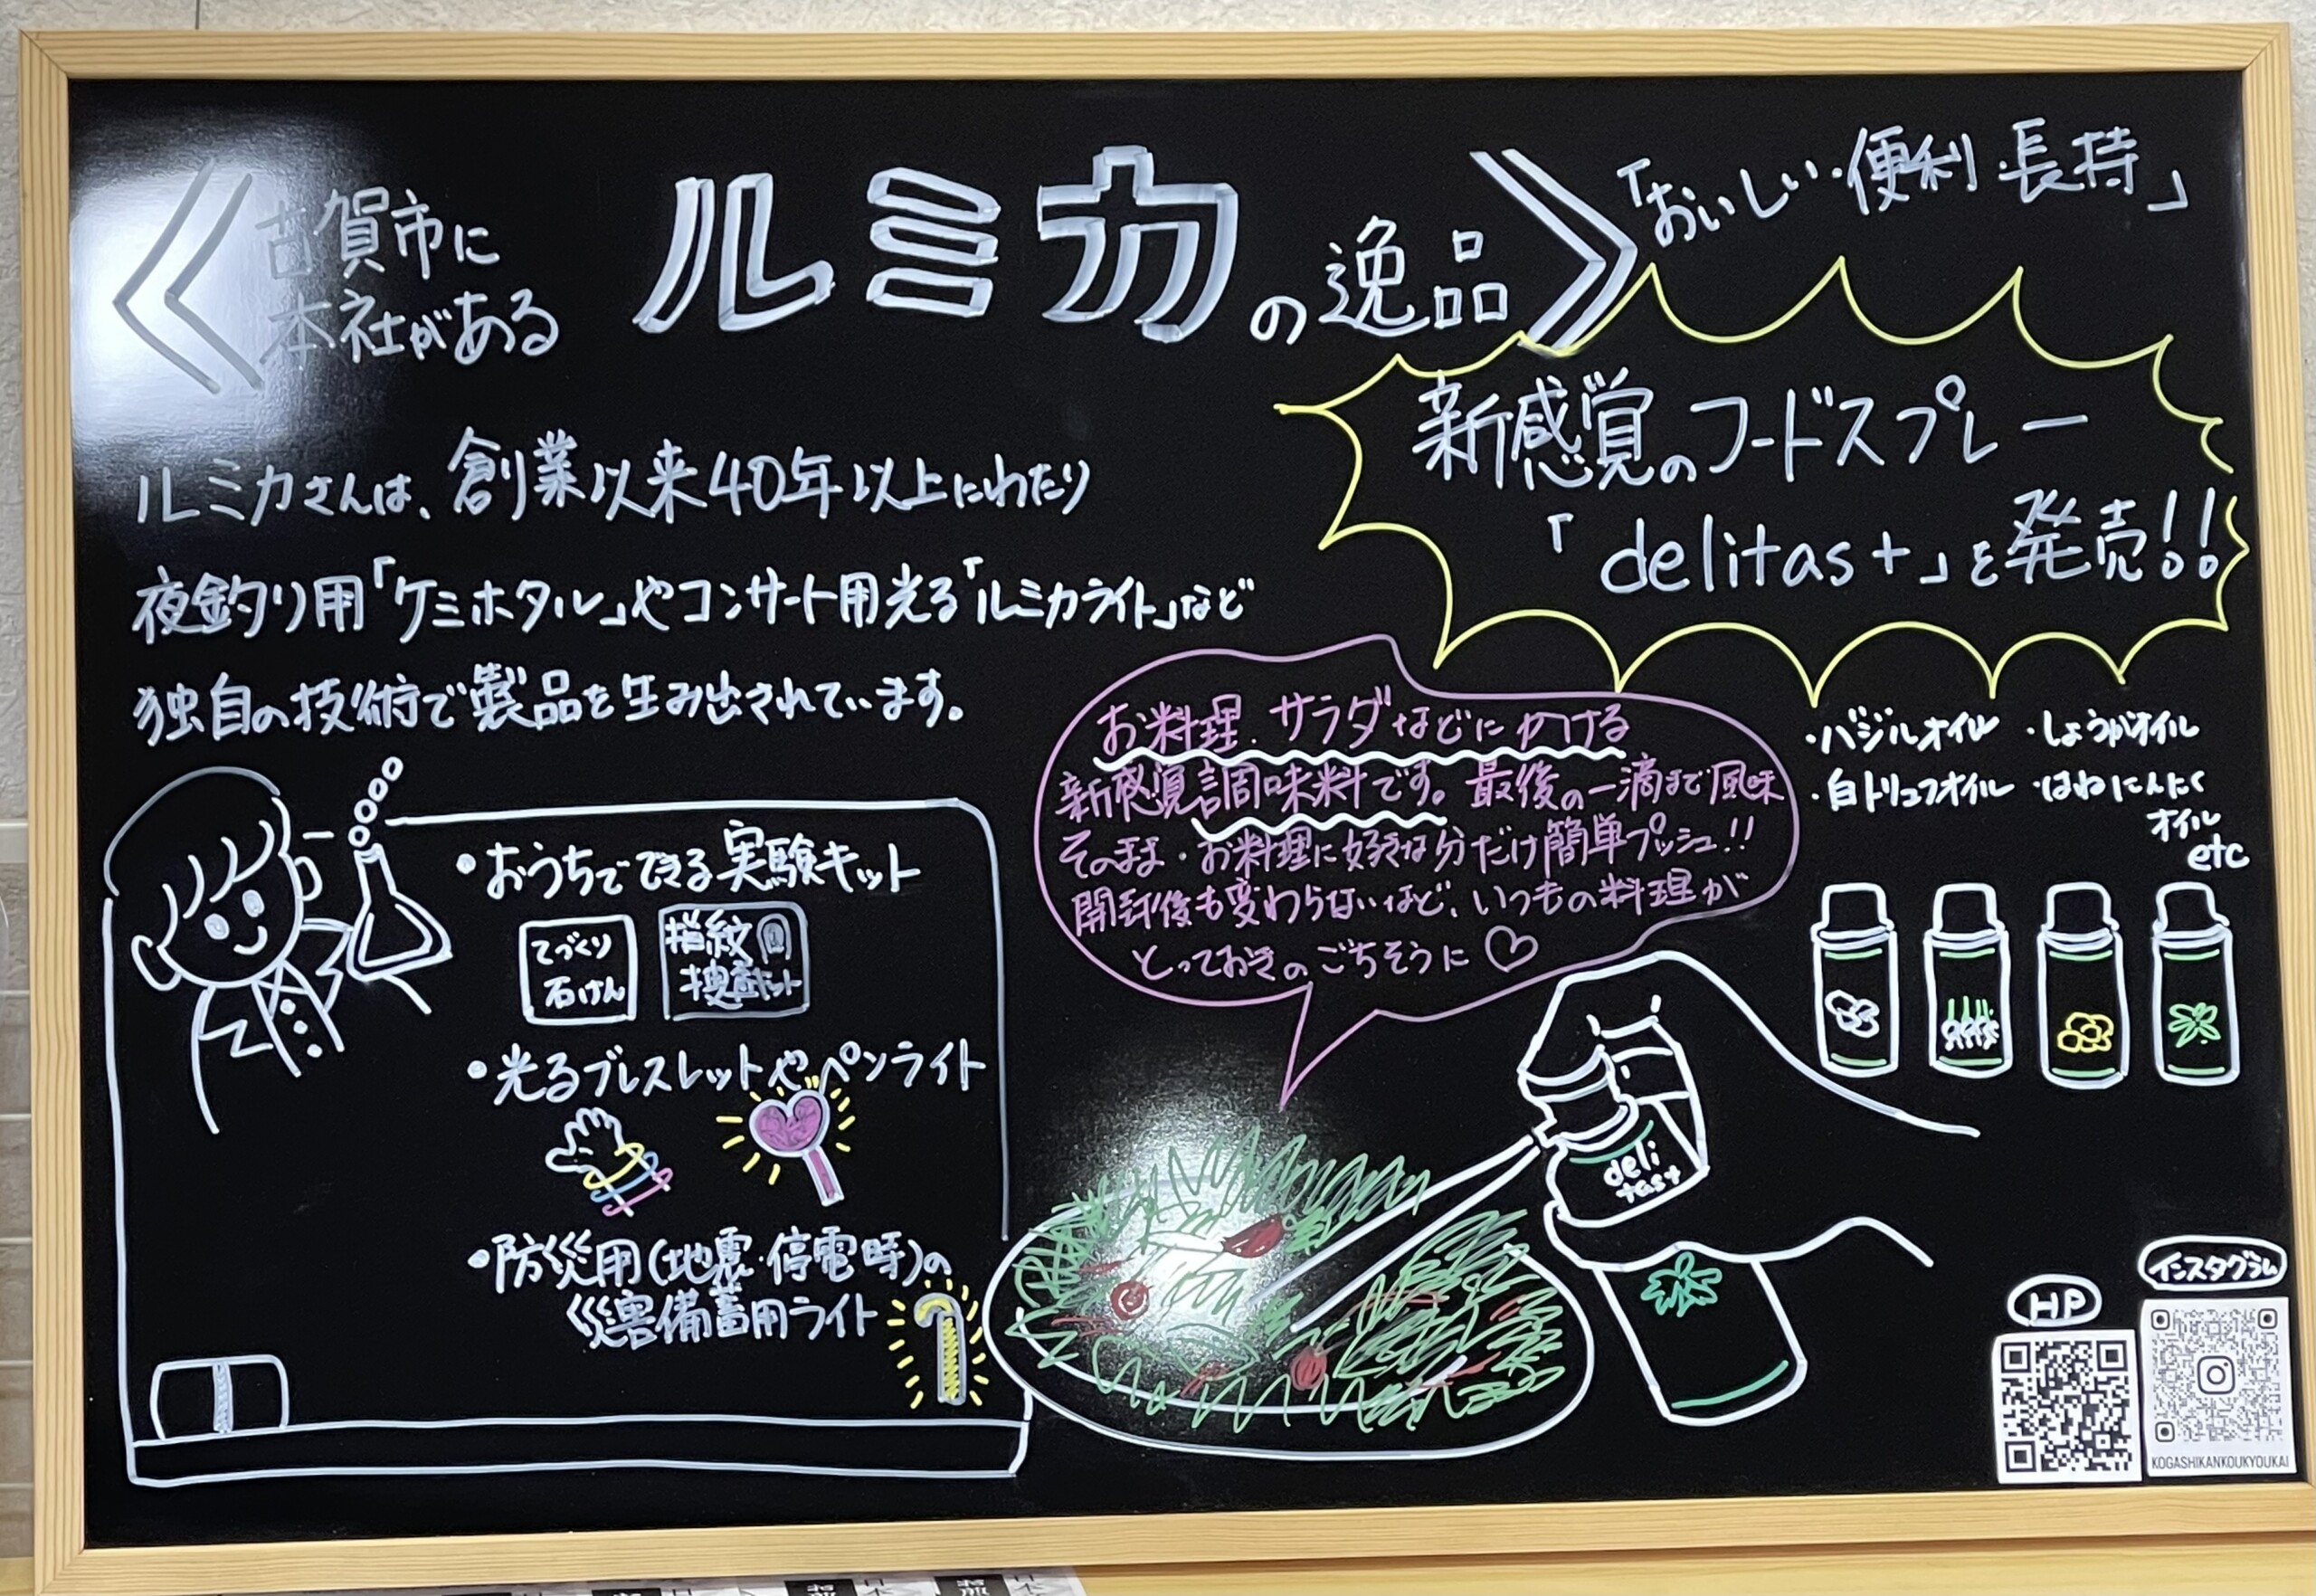 古賀市に
本社がある
ルミカの逸品
「おいしい・便利・長持」
新感覚のフードスプレー
「delitas+」を発売!!
ルミカさんは、創業以来40年以上にわたり
夜釣り用「ケミホタル」やコンサート用光る「ルミカライト」など
独自の技術で製品を生み出されています。
・おうちでできる実験キット
てづくり
石けん
指紋
捜査キット
・光るブレスレットやペンライト
・防災用(地震・停電時)の
災害備蓄用ライト
お料理、サラダなどにかける
新感覚調味料です。最後の一滴まで風味
そのまま・お料理に好きな分だけ簡単プッシュ!!
開封後も変わらないなど、いつもの料理が
とっておきのごちそうに♡
・バジルオイル ・しょうがオイル
・白トリュフオイル ・はねにんにく
オイル
etc
deli
tas+
HP
インスタグラム
KOGASHIKANKOUKYOUKAI